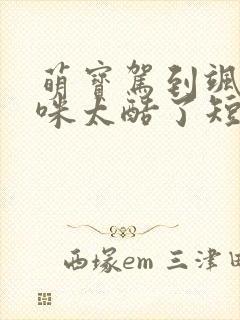 萌寶駕到颯
咪太酷了短
西塚em 三津田